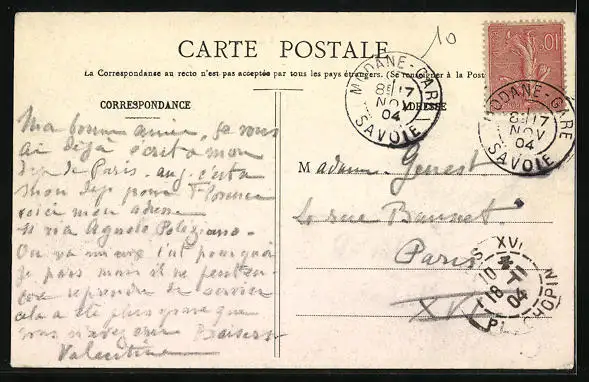 10
CARTE POSTALE
La Correspondance au recto n'est pas acceptée par tous les pays étrangers. (Se renseigner à la Poste
CORRESPONDANCE
ADRESSE
MODANE-GARE
8E 17
NOV
04
SAVOIE
MODANE-GARE
8E 17
NOV
04
SAVOIE
10
Ma bonne amie, je vous
ai déjà écrit à mon
dep de Paris
mon dep pour Florence
voici mon adresse
11 via Agnolo Poliziano
On va mieux
je pars mais il ne peut en-
core reprendre de service
cela a été plus grave que
vous n'avez cru Baisers
Valentine
Madame Genest
4 rue Bausset
Paris
XV
XVI
18 11 04
PL. CHOPIN